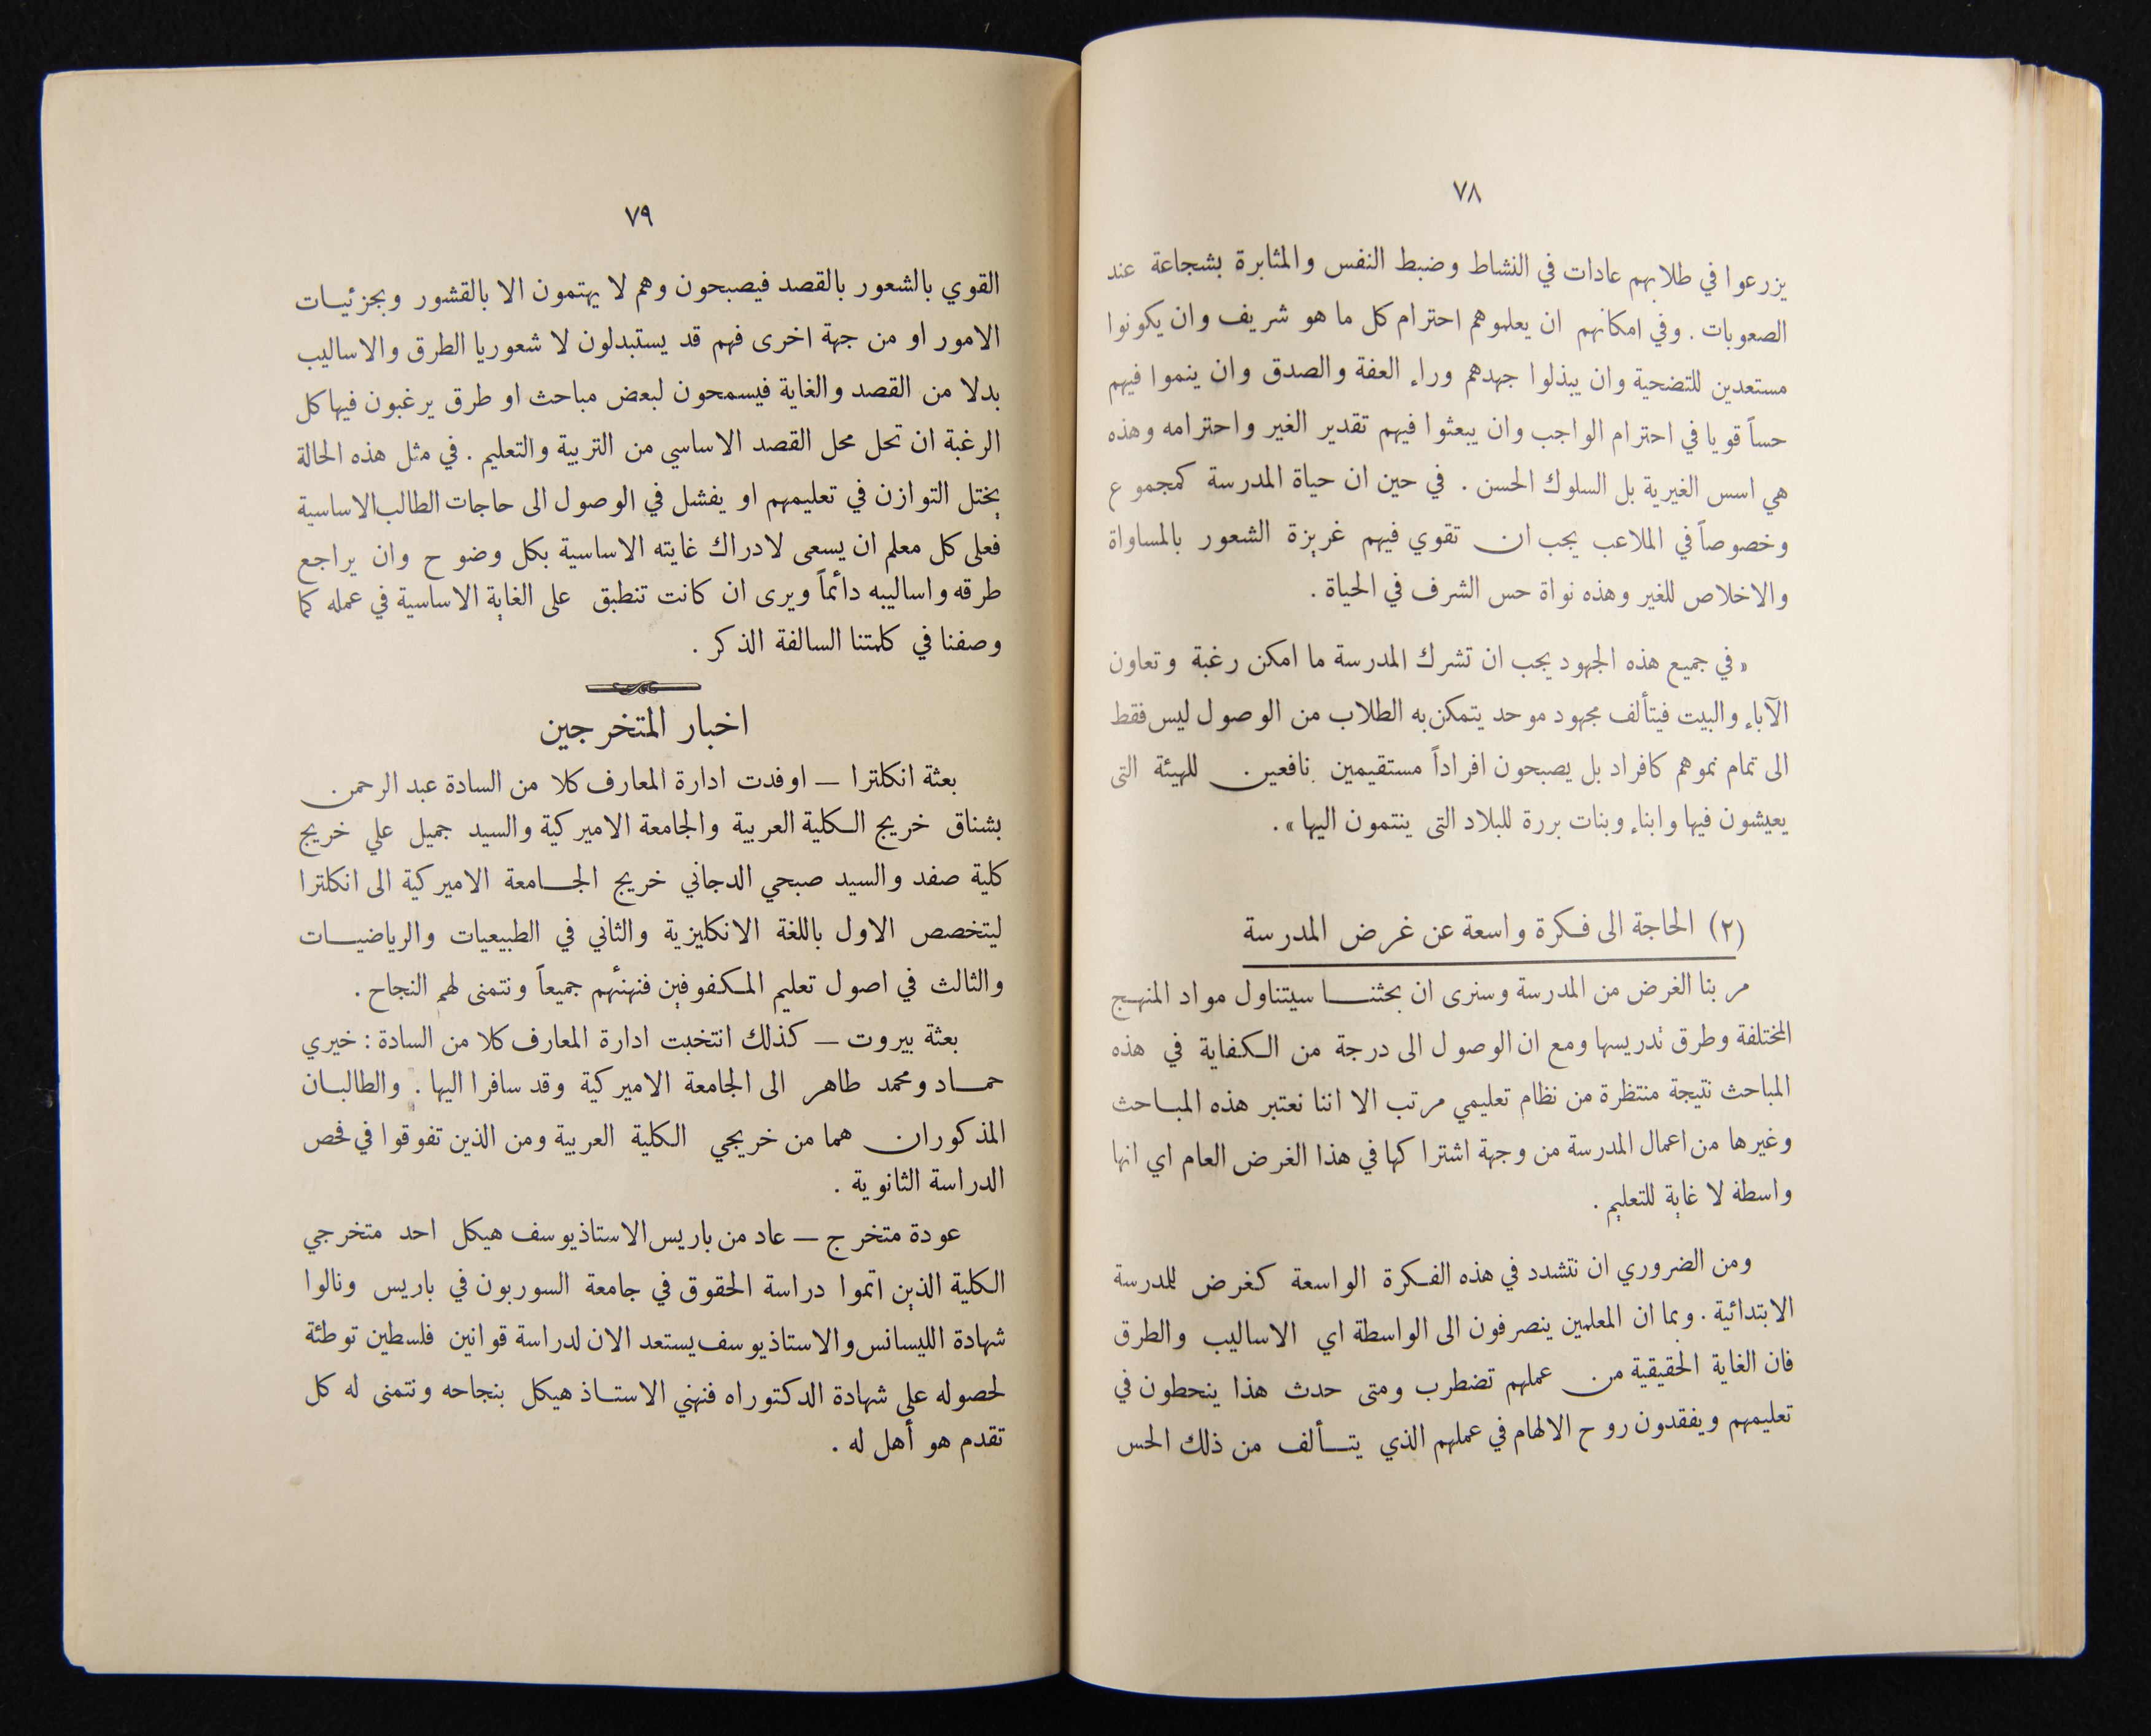 ٧٨
يزرعوا في طلابهم عادات في النشاط وضبط النفس والمثابرة بشجاعة عند
الصعوبات . وفي امكانهم ان يعلموهم احترام كل ما هو شريف وان يكونوا
مستعدين للتضحية وان يبذلوا جهدهم وراء العفة والصدق وان ينموا فيهم
حساً قويا في احترام الواجب وان يبعثوا فيهم تقدير الغير واحترامه وهذه
هي اسس الغيرية بل السلوك الحسن . في حين ان حياة المدرسة كمجموع
وخصوصاً في الملاعب يجب ان تقوي فيهم غريزة الشعور بالمساواة
والاخلاص للغير وهذه نواة حس الشرف في الحياة .
« في جميع هذه الجهود يجب ان تشرك المدرسة ما امكن رغبة وتعاون
الآباء والبيت فيتألف مجهود موحد يتمكن به الطلاب من الوصول ليس فقط
الى تمام نموهم كافراد بل يصبحون افراداً مستقيمين نافعين للهيئة التى
يعيشون فيها وابناء وبنات بررة للبلاد التى ينتمون اليها » .
(٢) الحاجة الى فكرة واسعة عن غرض المدرسة
مر بنا الغرض من المدرسة وسنرى ان بحثنا سيتناول مواد المنهج
المختلفة وطرق تدريسها ومع ان الوصول الى درجة من الكفاية في هذه
المباحث نتيجة منتظرة من نظام تعليمي مرتب الا اننا نعتبر هذه المباحث
وغيرها من اعمال المدرسة من وجهة اشتراكها في هذا الغرض العام اي انها
واسطة لا غاية للتعليم .
ومن الضروري ان نتشدد في هذه الفكرة الواسعة كغرض للمدرسة
الابتدائية . وبما ان المعلمين ينصرفون الى الواسطة اي الاساليب والطرق
فان الغاية الحقيقية من عملهم تضطرب ومتى حدث هذا ينحطون في
تعليمهم ويفقدون روح الالهام في عملهم الذي يتألف من ذلك الحس
٧٩
القوي بالشعور بالقصد فيصبحون وهم لا يهتمون الا بالقشور وبجزئيات
الامور او من جهة اخرى فهم قد يستبدلون لا شعوريا الطرق والاساليب
بدلا من القصد والغاية فيسمحون لبعض مباحث او طرق يرغبون فيها كل
الرغبة ان تحل محل القصد الاساسي من التربية والتعليم . في مثل هذه الحالة
يختل التوازن في تعليمهم او يفشل في الوصول الى حاجات الطالب الاساسية
فعلى كل معلم ان يسعى لادراك غايته الاساسية بكل وضوح وان يراجع
طرقه واساليبه دائماً ويرى ان كانت تنطبق على الغاية الاساسية في عمله كما
وصفنا في كلمتنا السالفة الذكر .
اخبار المتخرجين
بعثة انكلترا — اوفدت ادارة المعارف كلا من السادة عبد الرحمن
بشناق خريج الكلية العربية والجامعة الاميركية والسيد جميل علي خريج
كلية صفد والسيد صبحي الدجاني خريج الجامعة الاميركية الى انكلترا
ليتخصص الاول باللغة الانكليزية والثاني في الطبيعيات والرياضيات
والثالث في اصول تعليم المكفوفين فنهنئهم جميعاً ونتمنى لهم النجاح .
بعثة بيروت — كذلك انتخبت ادارة المعارف كلا من السادة : خيري
حماد ومحمد طاهر الى الجامعة الاميركية وقد سافرا اليها . والطالبان
المذكوران هما من خريجي الكلية العربية ومن الذين تفوقوا في فحص
الدراسة الثانوية .
عودة متخرج — عاد من باريس الاستاذ يوسف هيكل احد متخرجي
الكلية الذين اتموا دراسة الحقوق في جامعة السوربون في باريس ونالوا
شهادة الليسانس والاستاذ يوسف يستعد الان لدراسة قوانين فلسطين توطئة
لحصوله على شهادة الدكتوراه فنهني الاستاذ هيكل بنجاحه ونتمنى له كل
تقدم هو أهل له .